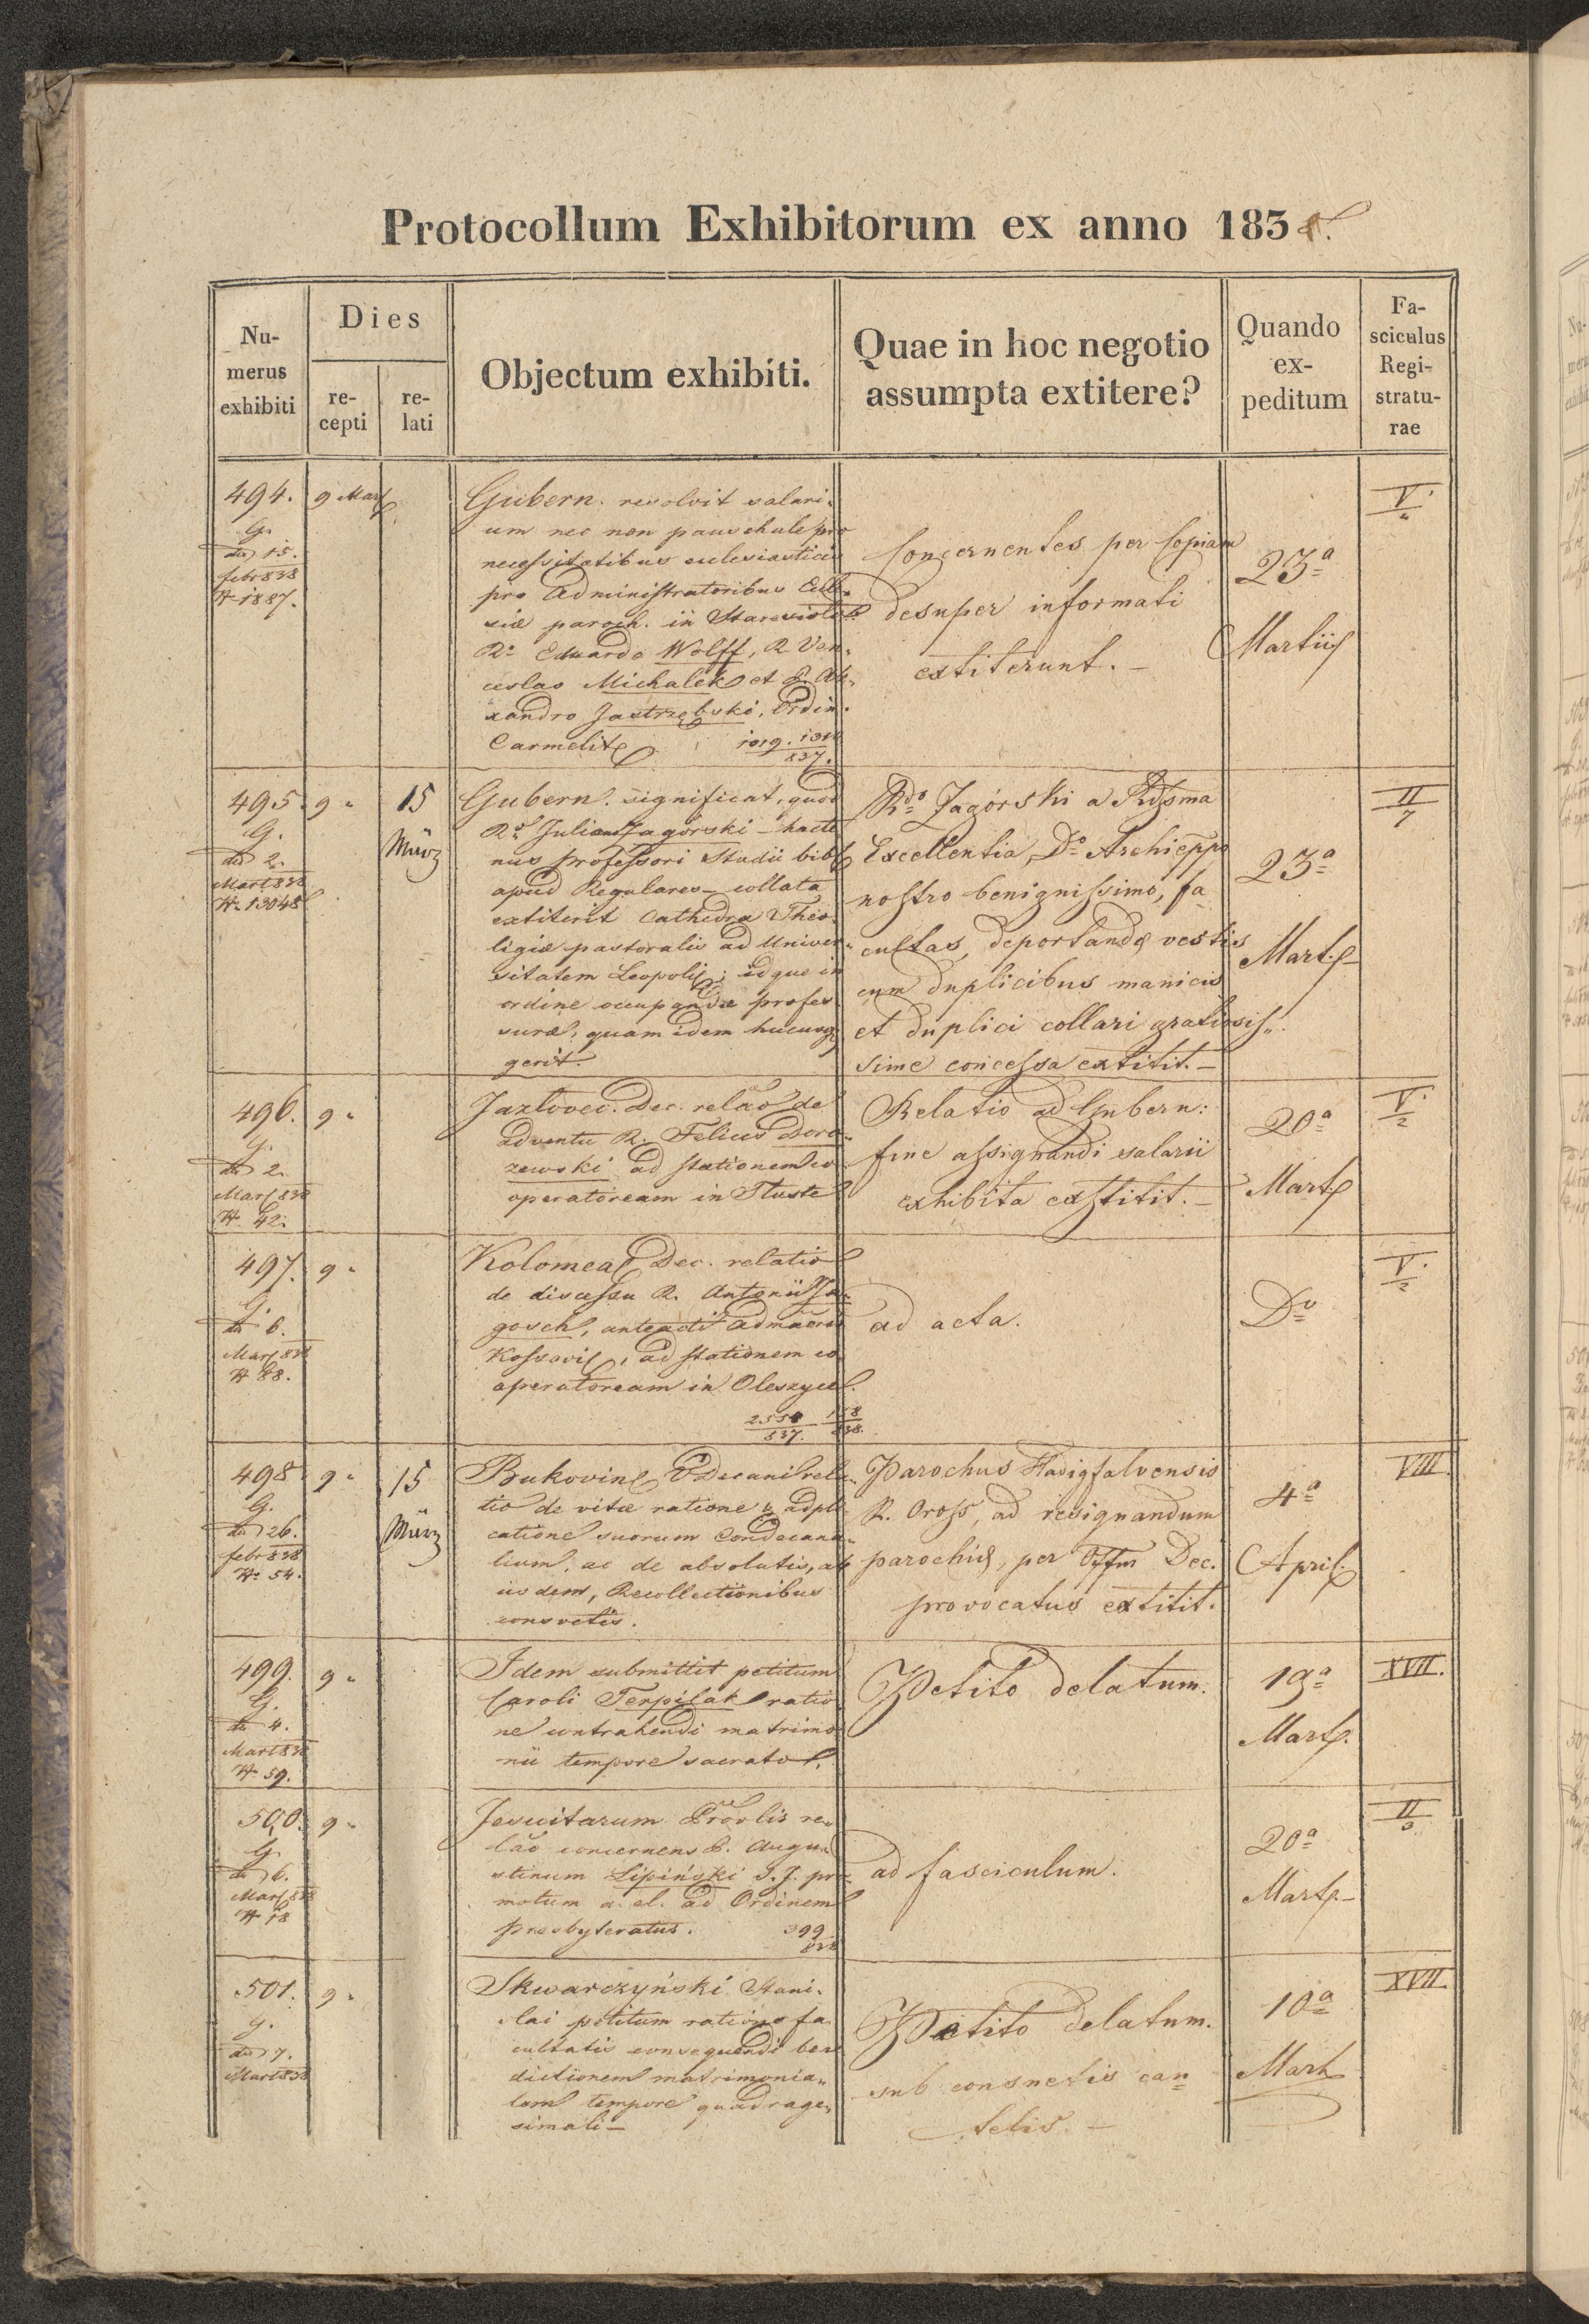 Protocollum Exhibitorum ex anno 1838.
Nu-
merus
exhibiti
Dies
re-
cepti
re-
lati
Objectum exhibiti.
Quae in hoc negotio
assumpta extitere?
Quando
ex-
peditum
Fa-
sciculus
Regi-
stratu-
rae
494.
G.
dto 15.
febr 838
N 1887.
9 Mart
Gubern. resolvit salari-
um nec non pauschale pro
necessitatibus ecclesiasticis
pro Administratoribus Eccle-
siae paroch. in
Ro Eduardo Wolff, R. Ven-
ceslao Michalek et R. Ale-
xandro Jastrzębski, Ordin.
Carmelit
1019. 1310
837.
Concernentes per Copiam
desuper informati
extiterunt. –
23a
Martii
V.
2
495.
G.
dto 2.
Mart 838
N. 13048
9 "
15
März
Gubern. significat, quod
Rdo Julian Zagórski – hacte
nus professori Studii bibl
apud Regulares – collata
extiterit Cathedra Theo-
logiae pastoralis ad Univer-
sitatem Leopoli; idque in
ordine occupandae profes-
surae, quam idem hucusq
gerit.
Rds Zagórski a Rdsma
Excellentia, Do Archieppo
nostro benignissimo, fa-
cultas, deportandae vestis
cum duplicibus manicis
et duplici collari gratiosis-
sime concessa extitit. –
23a
Mart. –
II
7
496.
G.
dto 2.
Mart 838
N. 42.
9 "
Jazlovec. Dec. relao de
adventu R. Felicis Doro-
zewski ad stationem co
operatoream in Tluste
Relatio ad Gubern:
fine assignandi salarii
exhibita exstitit. –
20a
Mart
V.
2
497.
G.
dto 6.
Mart 838
N 88.
9 "
Kolomea Dec. relatio
de discessu R. Antonii
gosch, anteacti Admaoris
Kossovi, ad stationem co
operatoream in Oleszyce.
2558 158
837. 838.
ad acta.
Do
V.
2
498
G.
dto 26.
febr 838
N. 54.
9 "
15
März
Bukovin VDecani rela-
tio de vitae ratione & adpli-
catione suorum Condecana-
lium, ac de absolutis, ab
iisdem, Recollectionibus
consvetis.
Parochus Hadigfalvensis
R. Oross, ad resignandum
parochiae, per Offm Dec.
provocatus extitit.
4a
April.
VIII.
499.
G.
dto 4.
Mart 838
N. 59.
9 "
Idem submittit petitum
Caroli Terpilak ratio
ne contrahendi matrimo
nii tempore sacrato.
Petito delatum.
19a
Mart.
XVII.
500.
G.
dto 6.
Mart 838
N 18
9 "
Jesuitarum Provlis re-
lao concernens R. Augu-
stinum Lipiński S.J. pro-
motum a. el. ad Ordinem
presbyteratus.
399
838
ad fasciculum.
20a
Mart. –
II
3
501.
G.
dto 7.
Mart 838
9 "
Skwarczyński Stani-
slai petitum ratione fa
cultatis consequendi bene
dictionem matrimonia-
lem tempore quadrage-
simali –
Petito delatum.
sub consuetis cau-
telis. –
10a
Mart
XVII.